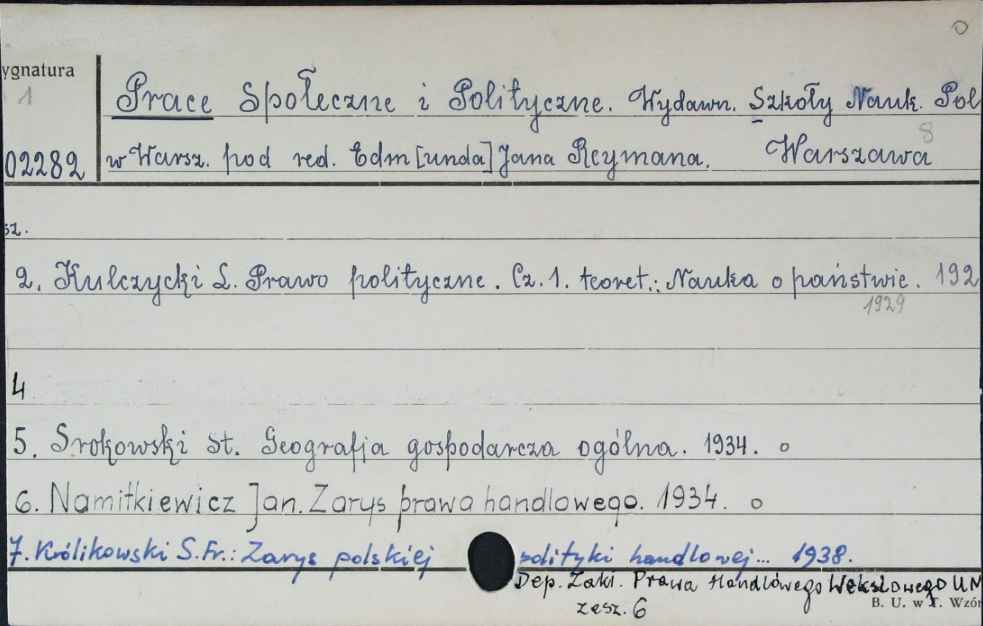 ygnatura
1
Prace Społeczne i Polityczne. Wydawn. Szkoły Nauk. Pol
8
02282 w Warsz. pod red. Edm[unda] Jana Reymana. Warszawa
sz.
2. Kulczycki L. Prawo polityczne. Cz. 1. teoret.: Nauka o państwie. 192
1929
4
5. Srokowski St. Geografja gospodarcza ogólna. 1934. o
6. Namitkiewicz Jan. Zarys prawa handlowego. 1934. o
7. Królikowski S. Fr.: Zarys polskiej polityki handlowej... 1938.
Dep. Zakł. Prawa Handlowego Wekslowego UM
zesz. 6
B. U. w T. Wzór